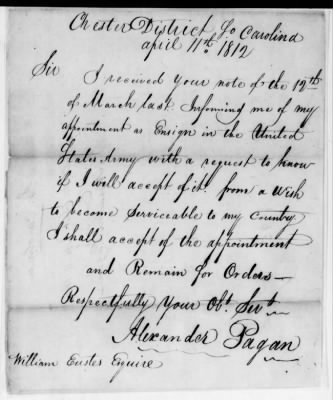 Chester District So Carolina
april 11th 1812
Sir
I received your note of the 12th
of March last Informing me of my
appointment as Ensign in the United
States Army with a request to know
if I will accept of it. from a Wish
to become Serviceable to my Country
I shall accept of the appointment
and Remain for Orders—
Respectfully your Obt. Servt
Alexander Pagan
William Eustes Esquire